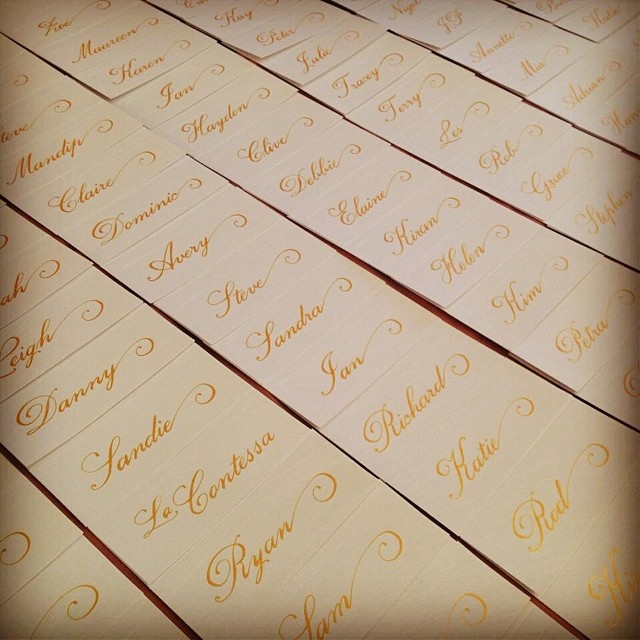 Zoe
Maureen
Karen
Hay
Peter
Julie
Nigel
JP
Annette
Mia
Adrian
Ian
Hayden
Clive
Debbie
Elaine
Kiran
Helen
Kim
Petra
Tracey
Terry
Les
Rob
Grace
Stephen
Mandip
Claire
Dominic
Avery
Steve
Sandra
Ian
Richard
Katie
Rod
Leigh
Danny
Sandie
La Contessa
Ryan
Sam